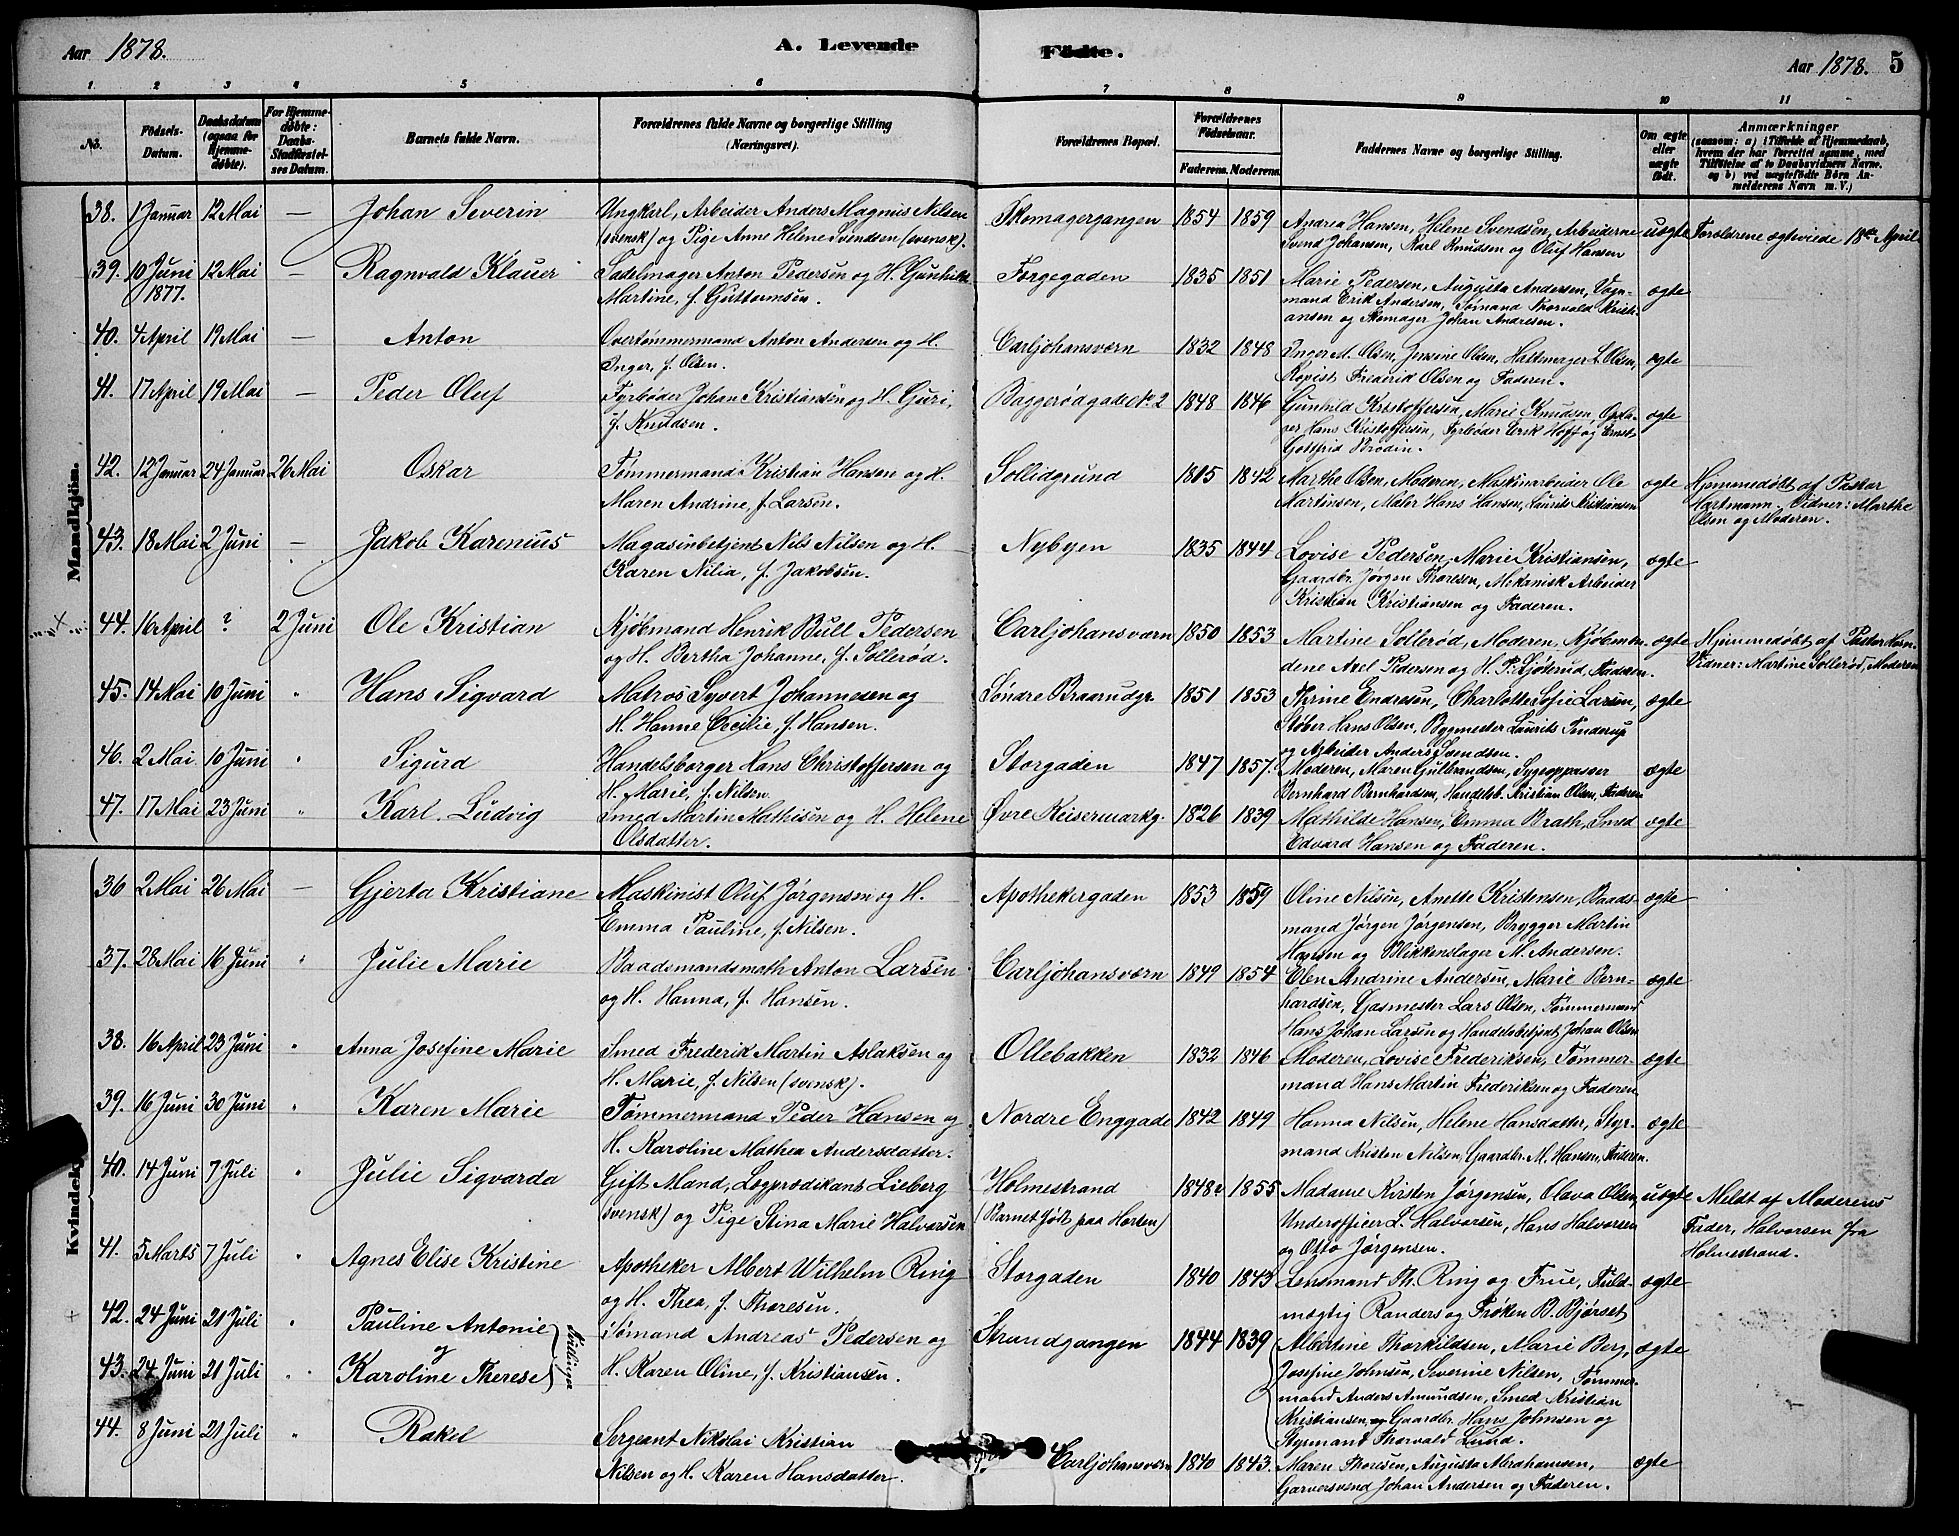 Aar 1878.
A. Levende
Födte.
Aar 1878. 5
1 2 3 4 5 6 7 8 9 10 11
No.
Födsels-Datum.
Daabsdatum (ogsaa for Hjemmedøbte).
For Hjemmedøbte: Daabs-Stadfæstelses Datum.
Barnets fulde Navn.
Forældrenes fulde Navne og borgerlige Stilling (Næringsvei).
Forældrenes Bopæl.
Forældrenes Födselsaar.
Faderens. Moderens.
Faddernes Navne og borgerlige Stilling.
Om ægte eller uægte födt.
Anmærkninger (saasom: a) i Tilfælde af Hjemmedaab, hvem der har forrettet samme, med Tilföielse af to Daabsvidners Navne. og b) ved uægtefödte Börn Anmelderens Navn m. V.)
Mandkjön.
38. 1 Januar 12 Mai — Johan Severin
Ungkarl, Arbeider Anders Magnus Nilsen
(svensk) og Pige Anne Helene Svendsen (svensk).
Skomagergangen 1854 1859
Andrea Hansen, Helene Svendsen, Arbeiderne
Svend Johansen, Karl Knudsen og Oluf Hansen
uægte Forældrene ægteviede 18de April
39. 10 Juni 1877. 12 Mai — Ragnvald Klauer
Sadelmager Anton Pedersen og H. Gunhild
Martine, f. Guttormsen.
Torgegaden 1835 1851
Marie Pedersen, Augusta Andersen, Vogn-
mand Erik Andersen, Sømand Thorvald Kristi-
ansen og Skomager Johan Andresen.
ægte
40. 4 April 19 Mai — Anton
Overtømmermand Anton Andersen og H.
Inger, f. Olsen.
Carljohansværn 1832 1848
Inger M. Olsen, Jensine Olsen, Hattemager L. Olsen,
Kopist Frederik Olsen og Faderen.
ægte
41. 17 April 19 Mai — Peder Oluf
Fyrbøder Johan Kristiansen og H. Guri,
f. Knudsen.
Baggerødgade No. 2 1848 1846
Gunhild Kristoffersen, Marie Knudsen, Opda-
ger Hans Kristoffersen, Fyrbøder Erik Hoff og Ernst
Gottfrid Brodin.
ægte
42. 12 Januar 24 Januar 26 Mai Oskar
Tømmermand Kristian Hansen og H.
Maren Andrine, f. Larsen.
Sollidgrund 1815 1842
Marthe Olsen, Moderen, Maskinarbeider Ole
Martinsen, Maler Hans Hansen, Laurits Kristiansen
ægte Hjemmedøbt af Pastor
Hartmann. Vidner: Marthe
Olsen og Moderen.
43. 18 Mai 2 Juni — Jakob Karenius
Magasinbetjent Nils Nilsen og H.
Karen Nilia, f. Jakobsen.
Nybyen 1835 1844
Lovise Pedersen, Marie Kristiansen,
Gaardbr. Jørgen Thoresen, Mekanisk Arbeider
Kristian Kristiansen og Faderen.
ægte
44. 16 April ? 2 Juni Ole Kristian
Kjøbmand Henrik Bull Pedersen
og H. Bertha Johanne, f. Sollerød.
Carljohansværn 1850 1853
Martine Sollerød, Moderen, Kjøbmæn-
dene Axel Pedersen og H. P. Gjøterud, Fadderen.
ægte Hjemmedøbt af Pastor Horn
Vidner: Martine Sollerød, Moderen
45. 14 Mai 10 Juni " Hans Sigvard
Matros Syvert Johannesen og
H. Hanne Cecilie, f. Hansen.
Søndre Braarudgr. 1851 1853
Thrine Endresen, Charlotte Sofie Larsen,
Støber Hans Olsen, Bygmester Laurits Finderup
og Arbeider Anders Svendsen.
ægte
46. 2 Mai 10 Juni " Sigurd
Handelsborger Hans Christoffersen og
H. Marie, f. Nilsen.
Storgaden 1847 1857.
Moderen, Maren Gulbrandsen, Sygeoppasser
Bernhard Bernhardsen, Handelsb. Kristian Olsen, Faderen
ægte
47. 17 Mai 23 Juni " Karl Ludvig
Smed Martin Mathisen og H. Helene
Olsdatter.
Øvre Keisermarkg. 1826 1839
Mathilde Hansen, Emma Brath, Smed
Edvard Hansen og Faderen.
ægte
Kvindek
36 2 Mai 26 Mai — Gjerta Kristiane
Maskinist Oluf Jørgensen og H.
Emma Pauline, f. Nilsen.
Apothekergaden 1853 1859
Oline Nilsen, Anette Kristensen, Baads-
mand Jørgen Jørgensen, Brygger Martin
Hansen og Blikkenslager M. Andersen.
ægte
37. 28 Mai 16 Juni " Julie Marie
Baadsmandsmath Anton Larsen
og H. Hanna, f. Hansen.
Carljohansværn 1849 1854
Olen Andrine Andersen, Marie Bern-
hardsen, Gasmester Lars Olsen, Tømmermand
Hans Johan Larsen og Handelsbetjent Johan Olsen
ægte
38. 16 April 23 Juni " Anna Josefine Marie
Smed Frederik Martin Aslaksen og
H. Marie, f. Nilsen (svensk).
Ollebakken 1832 1846
Moderen, Lovise Frederiksen, Tømmer-
mand Hans Martin Frederiksen og Faderen
ægte
39. 16 Juni 30 Juni " Karen Marie
Tømmermand Peder Hansen og
H. Karoline Mathea Andersdatter.
Nordre Enggade 1842 1849
Hanna Nilsen, Helene Hansdatter, Styr-
mand Kristen Nilsen, Gaardbr. M. Hansen, Faderen.
ægte
40. 14 Juni 7 Juli " Julie Sigvarda
Gift Mand, Lægprædikant Lieberg
(svensk) og Pige Stina Marie Halvorsen
Holmestrand
(Barnet født paa Horten)
1848 1855
Madame Kirsten Jørgensen, Olava Olsen,
Underofficer L. Halvorsen, Hans Halvorsen
og Otto Jørgensen.
uægte Meldt af Moderens
Fader, Halvorsen fra
Holmestrand.
41. 5 Marts 7 Juli " Agnes Elise Kristine
Apotheker Albert Wilhelm Ring
og H. Thea, f. Thoresen.
Storgaden 1840 1843
Lensmand Th. Ring og Frue, Fuld-
mægtig Randers og Frøken B. Bjørset
ægte
42. 24 Juni 21 Juli " Pauline Antonie
og
43. 24 Juni 21 Juli " Karoline Therese
Tvillinger
Sømand Andreas Pedersen og
H. Karen Oline, f. Kristiansen.
Strandgangen 1844 1839
Albertine Thorkildsen, Marie Berg,
Josefine Johnsen, Severine Nilsen, Tømmer-
mand Anders Amundsen, Smed Kristian
Kristiansen, Gaardbr. Hans Johnsen og
Styrmand Thorvald Lund.
ægte
44. 8 Juni 21 Juli " Rakel
Sergeant Nikolai Kristian
Nilsen og H. Karen Hansdatter.
Carljohansværn 1840 1843.
Maren Thoresen, Augusta Abrahamsen,
Garversvend Johan Andersen og Faderen.
ægte